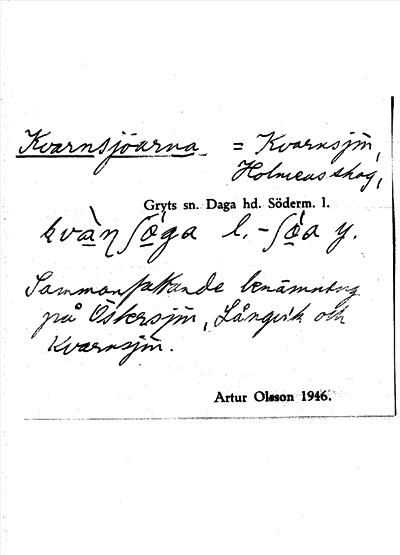 Kvarnsjöarna = Kvarnsjön,
Holmens skog,
Gryts sn. Daga hd. Söderm. l.
kvàɳʃo̱ga l. -ʃo̱a y.
Sammanfattande benämning
på Östersjön, Långvik och
Kvarnsjön.
Artur Olsson 1946.